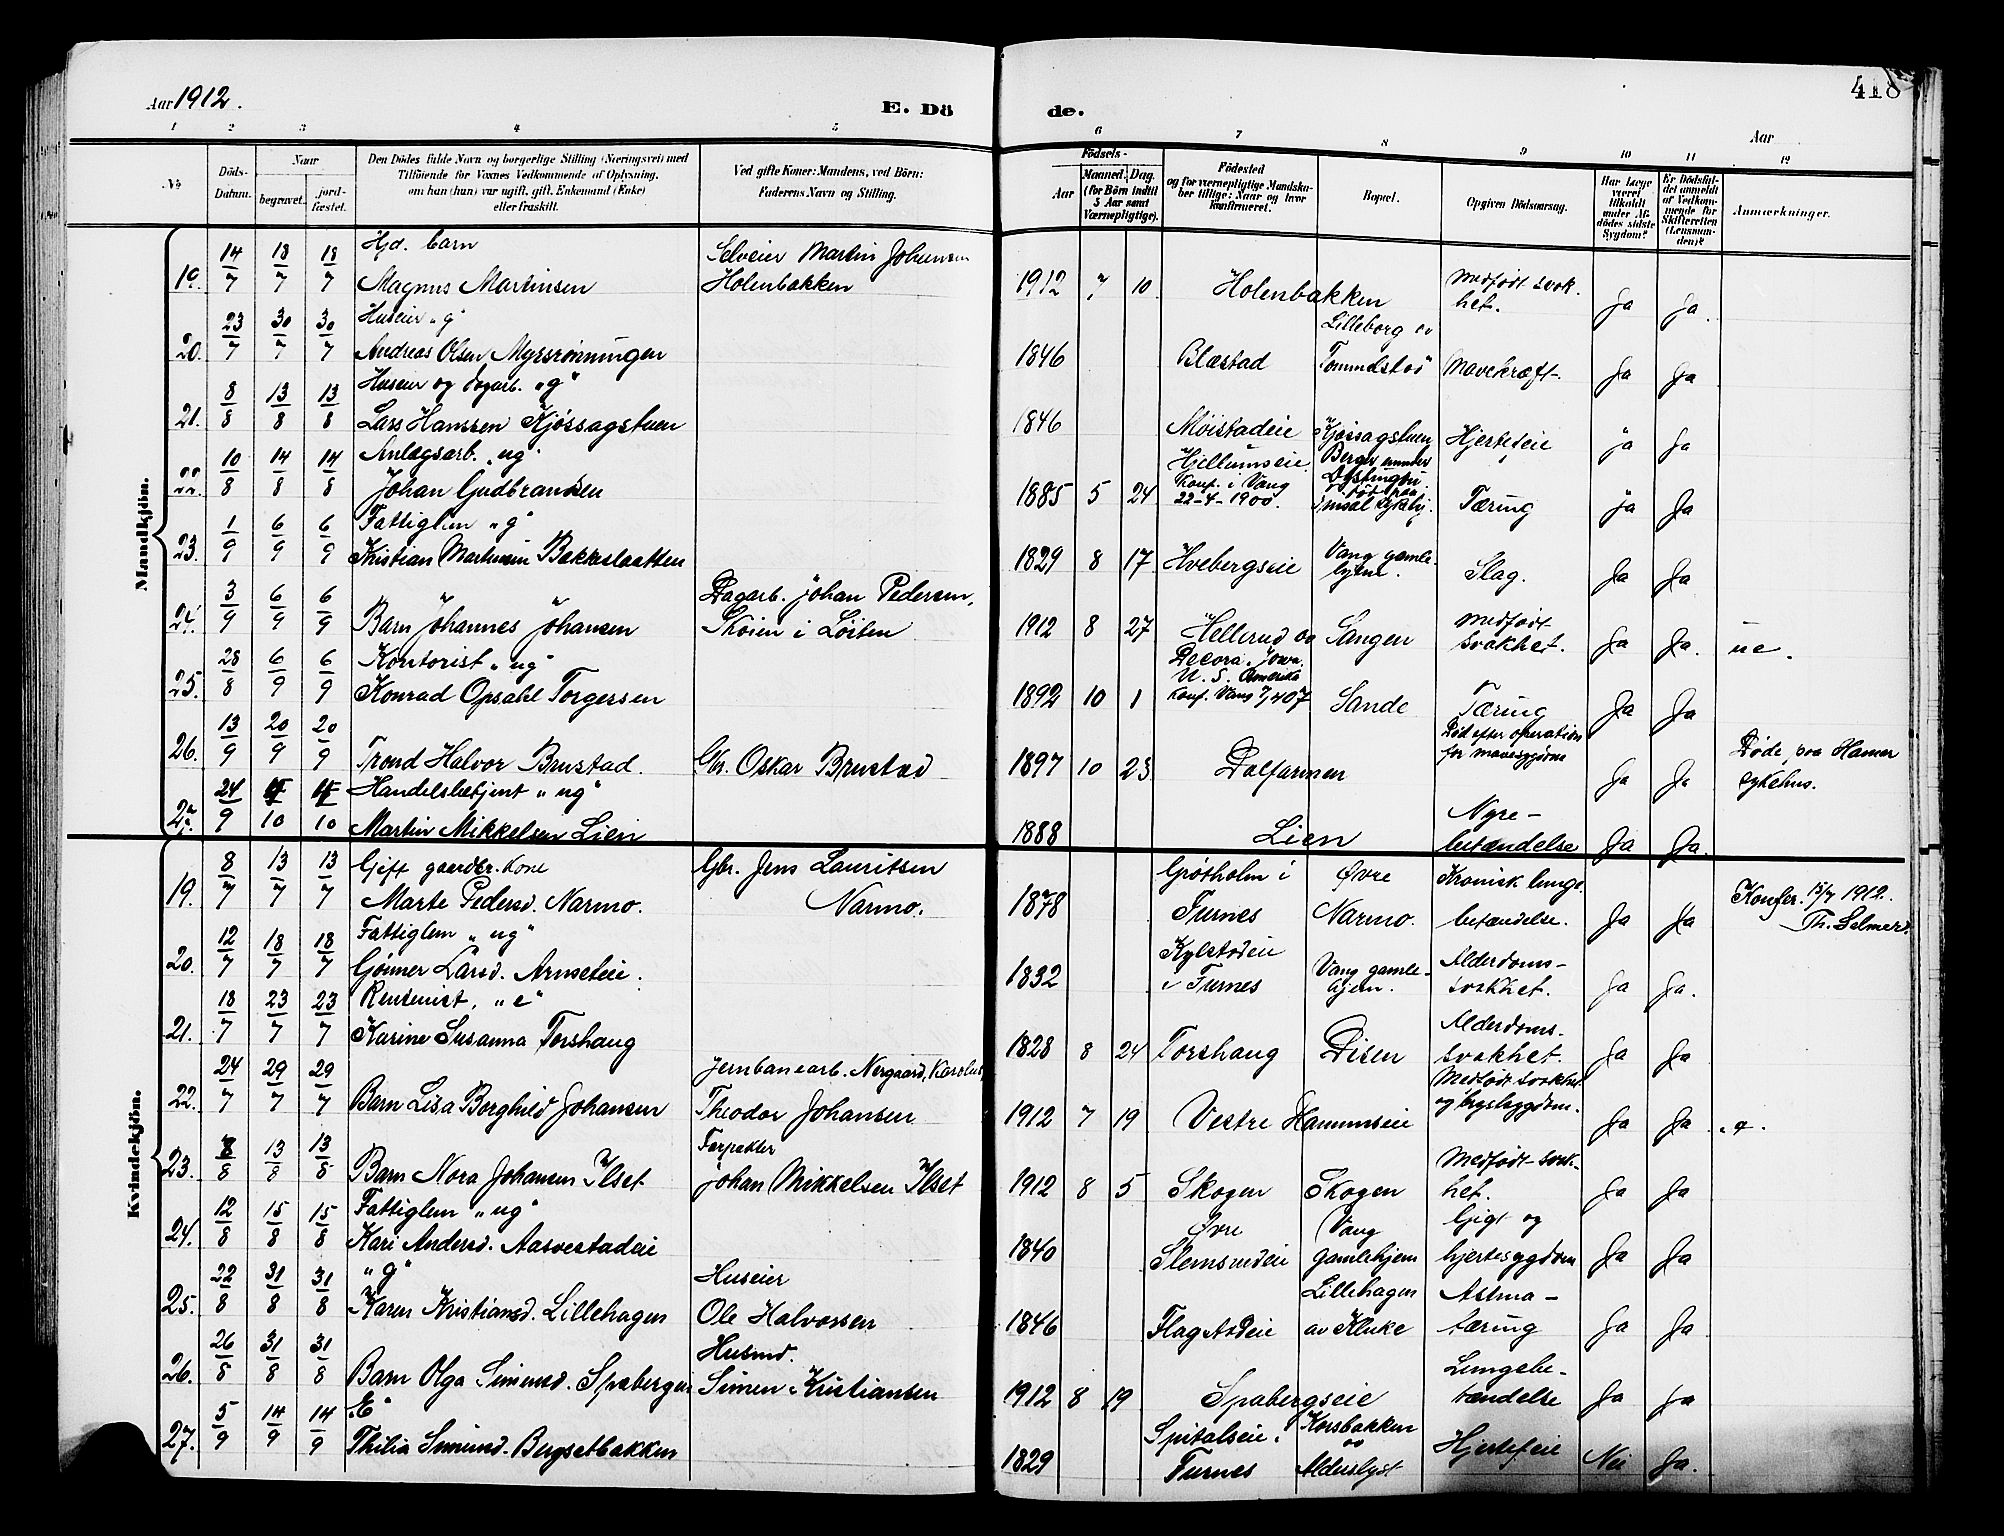 Aar 1912.
E. Döde.
418
Aar
1 2 3 4 5 6 7 8 9 10 11 12
No
Döds-Datum.
Naar
begravet.
jordfæstet.
Den Dödes fulde Navn og borgerlige Stilling (Næringsvei) med
Tilföiende for Voxnes Vedkommende af Oplysning,
om han (hun) var ugift, gift, Enkemand (Enke)
eller fraskilt.
Ved gifte Koner: Mandens, ved Börn:
Faderens Navn og Stilling.
Födsels-
Aar
Maaned. Dag.
(for Börn indtil
5 Aar samt
Værnepligtige).
Födested
og for værnepligtige Mandskaber tillige: Naar og hvor
konfirmeret.
Bopæl.
Opgiven Dödsaarsag.
Har Læge
været
tilkaldt
under Afdödes sidste
Sygdom?
Er Dödsfaldet anmeldt
af Vedkommende for
Skifteretten
(Lensmanden)?
Anmærkninger.
Mandkjön.
19. 14/7 18/7 18/7 Hjd. barn Magnus Martinsen Selveier Martin Johansen Holenbakken 1912 7 10 Holenbakken Medfödt svakhet. Ja Ja.
20. 23/7 30/7 30/7 Huseier "g" Andreas Olsen Myrsrønningen 1846 Blæstad Lilleborg av Tommelstad Mavekræft. Ja Ja
21. 8/8 13/8 13/8 Huseier og dagarb. "g" Lars Hanssen Kjøssagstuen 1846 Møistadeie Kjøssagstuen Hjertefeie ja Ja
22. 10/8 14/8 14/8 Anlægsarb. "ug" Johan Gudbrandsen 1885 5 24 Hjellumseie. Konf. i Vang 22-4-1900. Berger under Tæring ja Ja
23. 1/9 6/9 6/9 Fattiglem "g" Kristian Bakkeslaatten 1829 8 17 Hvebergseie Vang gamlehjem. Slag. Ja Ja
24. 3/9 6/9 6/9 Barn Johannes Johansen Dagarb. Johan Pedersen, Skøien i Løiten 1912 8 27 Hellerud av Sangen Medfödt svakhet. Ja Ja. ue.
25. 28/8 6/9 6/9 Kontorist "ug" Konrad Opsahl Torgersen 1892 10 1 Decora, Jowa. U. S. Amerika Konf. Vang 7/4 07 Sande Tæring Ja Ja
26. 13/9 20/9 20/9 Trond Halvor Brustad. Gbr. Oskar Brustad 1897 10 23 Dalfarmen Död efter operation for mavesygdom Ja Ja Døde paa Hamar sykehus.
27. 24/9 /10 /10 Handelsbetjent "ug" Martin Mikkelsen Lien 1888 Lien Nyrebetændelse Ja Ja.
Kvindekjön.
19. 8/7 13/7 13/7 Gift gaardbr. kone Marte Pedersd. Narmo. Gbr. Jens Lauritsen Narmo. 1878 Grøtholm i Furnes Øvre Narmo. Kronisk lungebetændelse. Ja Ja Konfer. 15/7 1912. Th. Selmer.
20. 12/7 18/7 18/7 Fattiglem "ug" Gønner Larsd. Arnseteie. 1832 Kylstadeie i Furnes Vang gamlehjem. Alderdomssvakhet. Ja Ja.
21. 18/7 23/7 23/7 Rentenist, "e" Karine Susanna Torshaug 1828 8 24 Torshaug Disen Alderdomssvakhet. Ja Ja
22. 24/7 29/7 29/7 Barn Lisa Borghild Johansen Jernbanearb. Nergaard, Karolus Theodor Johansen 1912 7 19 Vestre Hammseie Medfödt svakhet og brystsygdom. Ja Ja
23. 8/8 13/8 13/8 Barn Nora Johansen Ilset Forpakter Johan Mikkelsen Ilset 1912 8 5 Skogen Skogen Medfödt svakhet. Ja Ja
24. 12/8 15/8 15/8 Fattiglem "ug" Kari Andersd. Aasvestadeie 1840 Øvre Slemsrudeie Vang gamlehjem Gigt og hjertesygdom Ja Ja
25. 22/8 31/8 31/8 "g" Karen Kristiansd. Lillehagen Huseier Ole Halvorsen 1846 Flagstadeie Lillehagen av Kluke Astma - tæring Ja Ja
26. 26/8 31/8 31/8 Barn Olga Simensd. Spabergen Husmd. Simen Kristiansen 1912 8 19 Spabergseie Lungebetændelse Ja Ja
27. 5/9 14/9 14/9 "E" Thilia Simensd. Bergsetbakken 1829 Spitalseie. Furnes Korsbakken av Alderslyst Hjertefeie Nei Ja.